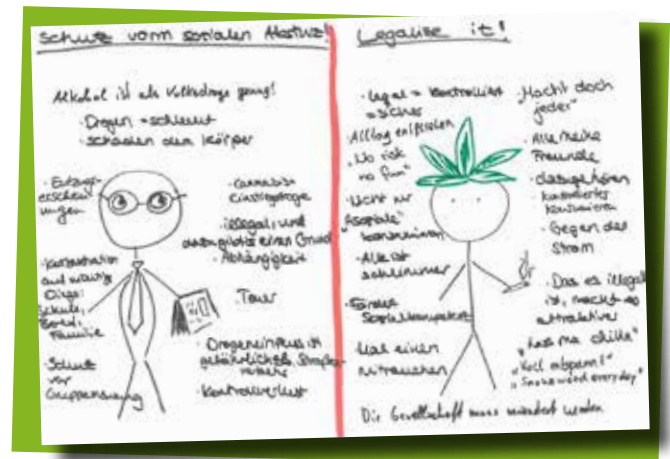 Schutz vorm sozialen Absturz!
Alkohol ist als Volksdroge genug!
· Drogen = schlecht
· schaden dem Körper
· Entzugs-
erschein
ungen
· Konzentration
auf wichtige
Dinge:
Schule,
Beruf,
Familie
· Schutz
vor
Gruppenzwang
· Cannabis =
Einstiegsdroge
· illegal, und
dafür gibt es einen Grund
· Abhängigkeit
· Teuer
· Drogeneinfluss ist
gefährlich z.B. Straßen-
verkehr
· Kontrollverlust
Legalize it!
· legal = kontrolliert
= sicher
· Alltag entfliehen
„No risk
no fun"
· Nicht nur
"Asoziale"
konsumieren
· Alk ist
schlimmer
· Fördert
Sozialkompetenz
· Mal einen
mitrauchen
„Macht doch
jeder"
· Alle meine
Freunde
· dazugehören
· kontrolliertes
konsumieren
· Gegen den
Strom
· Das es illegal
ist, macht es
attraktiver
„Lass ma chille"
„Voll entspannt"
„Smoke weed everyday"
Die Gesellschaft muss verändert werden